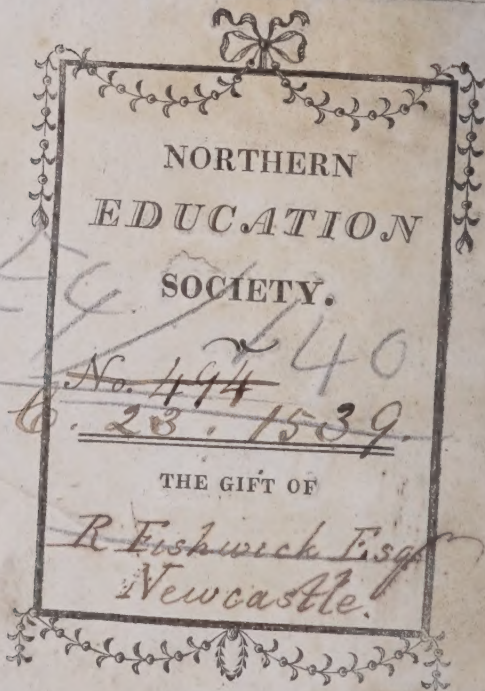 NORTHERN
EDUCATION
SOCIETY.
No. 494
6. 23. 1539.
THE GIFT OF
R Fishwick Esqr
Newcastle.